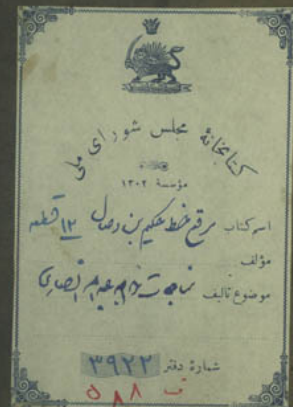 کتابخانهٔ مجلس شورای ملی
مؤسسهٔ ۱۳۰۲
اسم کتاب مرقع خط حکیم بن وصال ۱۲ قطعه
مؤلف
موضوع تألیف مناجات خواجه عبدالله انصاری
شمارهٔ دفتر ۳۹۲۲
ف ۵۸۸